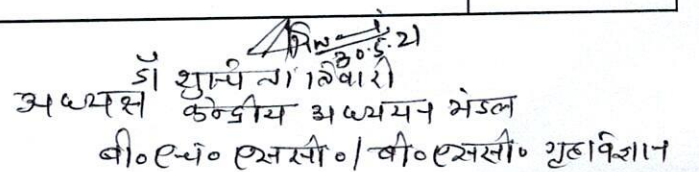 30.5.21
डॉ शुचि तिवारी
अध्यक्ष केन्द्रीय अध्ययन मंडल
बी०एच० एससी०/बी०एससी० गृहविज्ञान